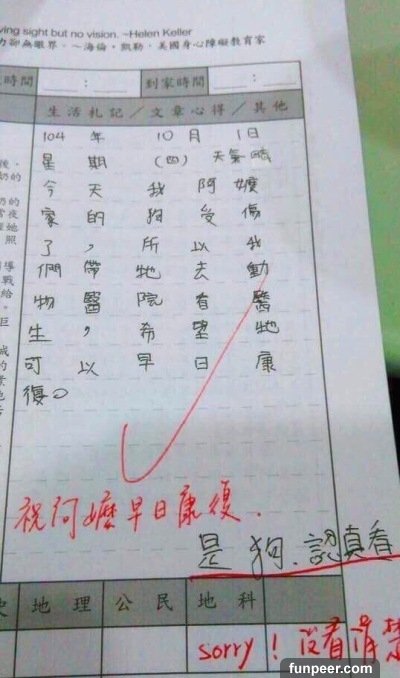 ving sight but no vision. ~Helen Keller
力卻無眼界。~海倫‧凱勒，美國身心障礙教育家
時間 : 到家時間 :
生活札記／文章心得／其他
104 年 10 月 1日
星期 (四) 天氣晴
今天我阿嬤
家的狗受傷
了，所以我
們帶牠去動
物醫院看醫
生，希望牠
可以早日康
復。
祝阿嬤早日康復.
是狗.認真看
地理 公民 地科
sorry！沒看清楚
funpeer.com